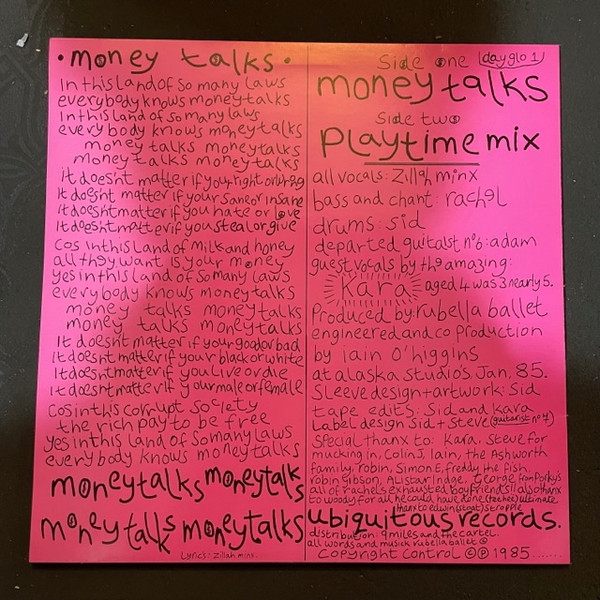 • money talks •
In this land of so many laws
everybody knows money talks
In this land of so many laws
every body knows money talks
money talks moneytalks
money talks moneytalks
It doesn't matter if your right or wrong
It doesn't matter if your sane or insane
It doesnt matter if you hate or love
It doesnt matter if you steal or give
cos in this land of milk and honey
all they want is your money
yes in this land of so many laws
everybody knows moneytalks
money talks moneytalks
money talks moneytalks
It doesnt matter if your good or bad
It doesnt matter if your black or white
It doesnt matter if you live or die
It doesnt matter if your male or female
cos in this corrupt society
the rich pay to be free
yes in this land of so many laws
everybody knows moneytalks
moneytalks moneytalks
moneytalks moneytalks
Lyrics: Zillah minx.
Side one (dayglo 1)
money talks
Side two
Playtime mix
all vocals: Zillah minx
bass and chant: rachel
drums: sid
departed guitarist no6: adam
guest vocals by the amazing:
Kara aged 4 was 3 nearly 5.
Produced by: rubella ballet
engineered and co production
by iain o'higgins
at alaska studio's Jan. 85.
Sleeve design + artwork: Sid
tape edits: Sid and Kara
Label design Sid + Steve (guitarist no 7)
Special thanx to: Kara. Steve for
mucking in, Colin J, Iain, the Ashworth
family, robin, Simon E, freddy the fish
robin Gibson, Alistair Indge, George from Porky's
all of rachels exhausted boyfriends!! also thanx
to woody for all he could have done
thanx to edwin
ubiquitous records.
distribution: 9 miles and the cartel.
all words and musick rubella ballet ©
Copyright Control © Ⓟ 1985.......